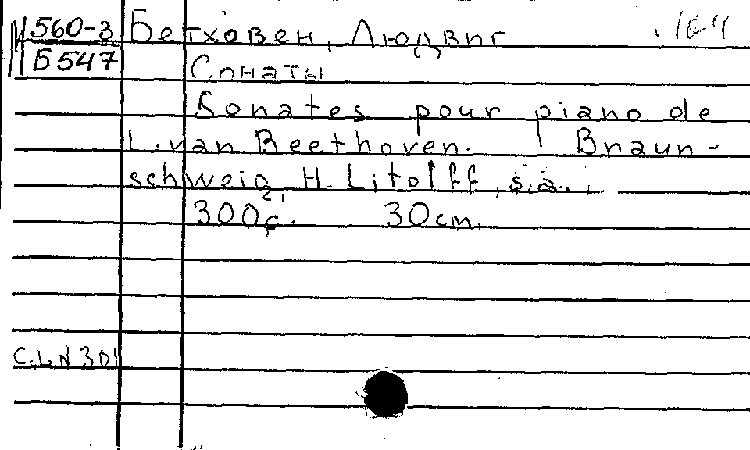 560-3 Бетховен, Людвиг
Б547 Сонаты
Sonates pour piano de
L. van Beethoven. Braun-
schweig H. Litolff, s.a.,
300c. 30cm.